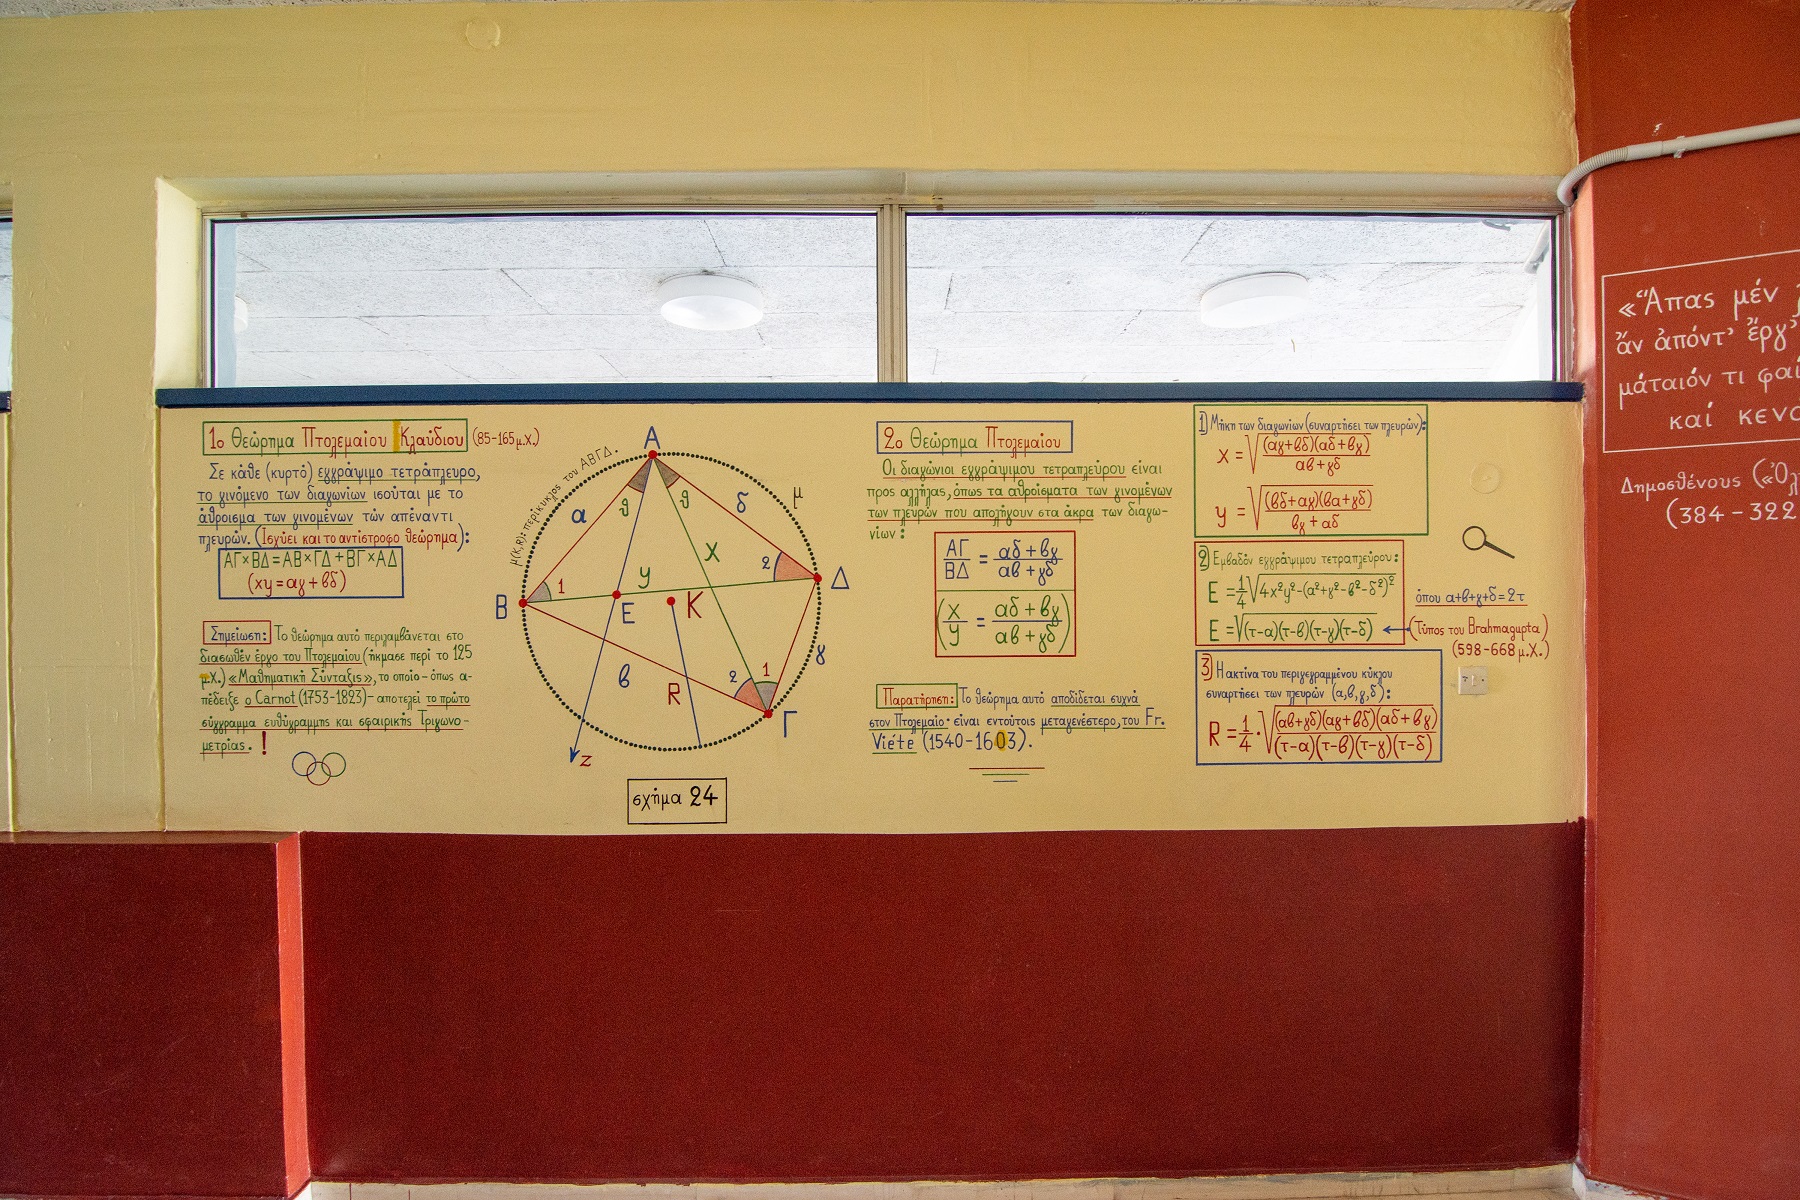 1ο Θεώρημα Πτολεμαίου Κλαύδιου (85-165 μ.Χ.)
Σε κάθε (κυρτό) εγγράψιμο τετράπλευρο,
το γινόμενο των διαγωνίων ισούται με το
άθροισμα των γινομένων τών απέναντι
πλευρών. (Ισχύει και το αντίστροφο θεώρημα):
ΑΓ×ΒΔ=ΑΒ×ΓΔ+ΒΓ×ΑΔ
(xy=αγ+βδ)
Σημείωση: Το θεώρημα αυτό περιλαμβάνεται στο
διασωθέν έργο του Πτολεμαίου (ήκμασε περί το 125
μ.Χ.) «Μαθηματική Σύνταξις», το οποίο-όπως α-
πέδειξε ο Carnot (1753-1823)-αποτελεί το πρώτο
σύγγραμμα ευθύγραμμης και σφαιρικής Τριγωνο-
μετρίας. !
μ(Κ,R): περίκυκλος του ΑΒΓΔ.
Α
α
θ
θ
δ
μ
x
2
y
1
Δ
Β
Ε
Κ
γ
β
R
2
1
Γ
z
σχήμα 24
2ο Θεώρημα Πτολεμαίου
Οι διαγώνιοι εγγράψιμου τετραπλεύρου είναι
προς αλλήλας, όπως τα αθροίσματα των γινομένων
των πλευρών που απολήγουν στα άκρα των διαγω-
νίων:
ΑΓ/ΒΔ = αδ+βγ/αβ+γδ
(x/y = αδ+βγ/αβ+γδ)
Παρατήρηση: Το θεώρημα αυτό αποδίδεται συχνά
στον Πτολεμαίο· είναι εντούτοις μεταγενέστερο, του Fr.
Viéte (1540-1603).
1) Μήκη των διαγωνίων (συναρτήσει των πλευρών):
x = √(αγ+βδ)(αδ+βγ)/αβ+γδ
y = √(βδ+αγ)(βα+γδ)/βγ+αδ
2) Εμβαδόν εγγράψιμου τετραπλεύρου:
Ε = 1/4 √4x²y²-(α²+γ²-β²-δ²)²
Ε = √(τ-α)(τ-β)(τ-γ)(τ-δ)
όπου α+β+γ+δ=2τ
(Τύπος του Brahmagupta)
(598-668 μ.Χ.)
3) Η ακτίνα του περιγεγραμμένου κύκλου
συναρτήσει των πλευρών (α,β,γ,δ):
R = 1/4 · √(αβ+γδ)(αγ+βδ)(αδ+βγ)/(τ-α)(τ-β)(τ-γ)(τ-δ)
«Ἅπας μέν
ἄν ἀπόντ' ἔργ'
μάταιόν τι φαί
καί κενο
Δημοσθένους («Ὀλ
(384-322